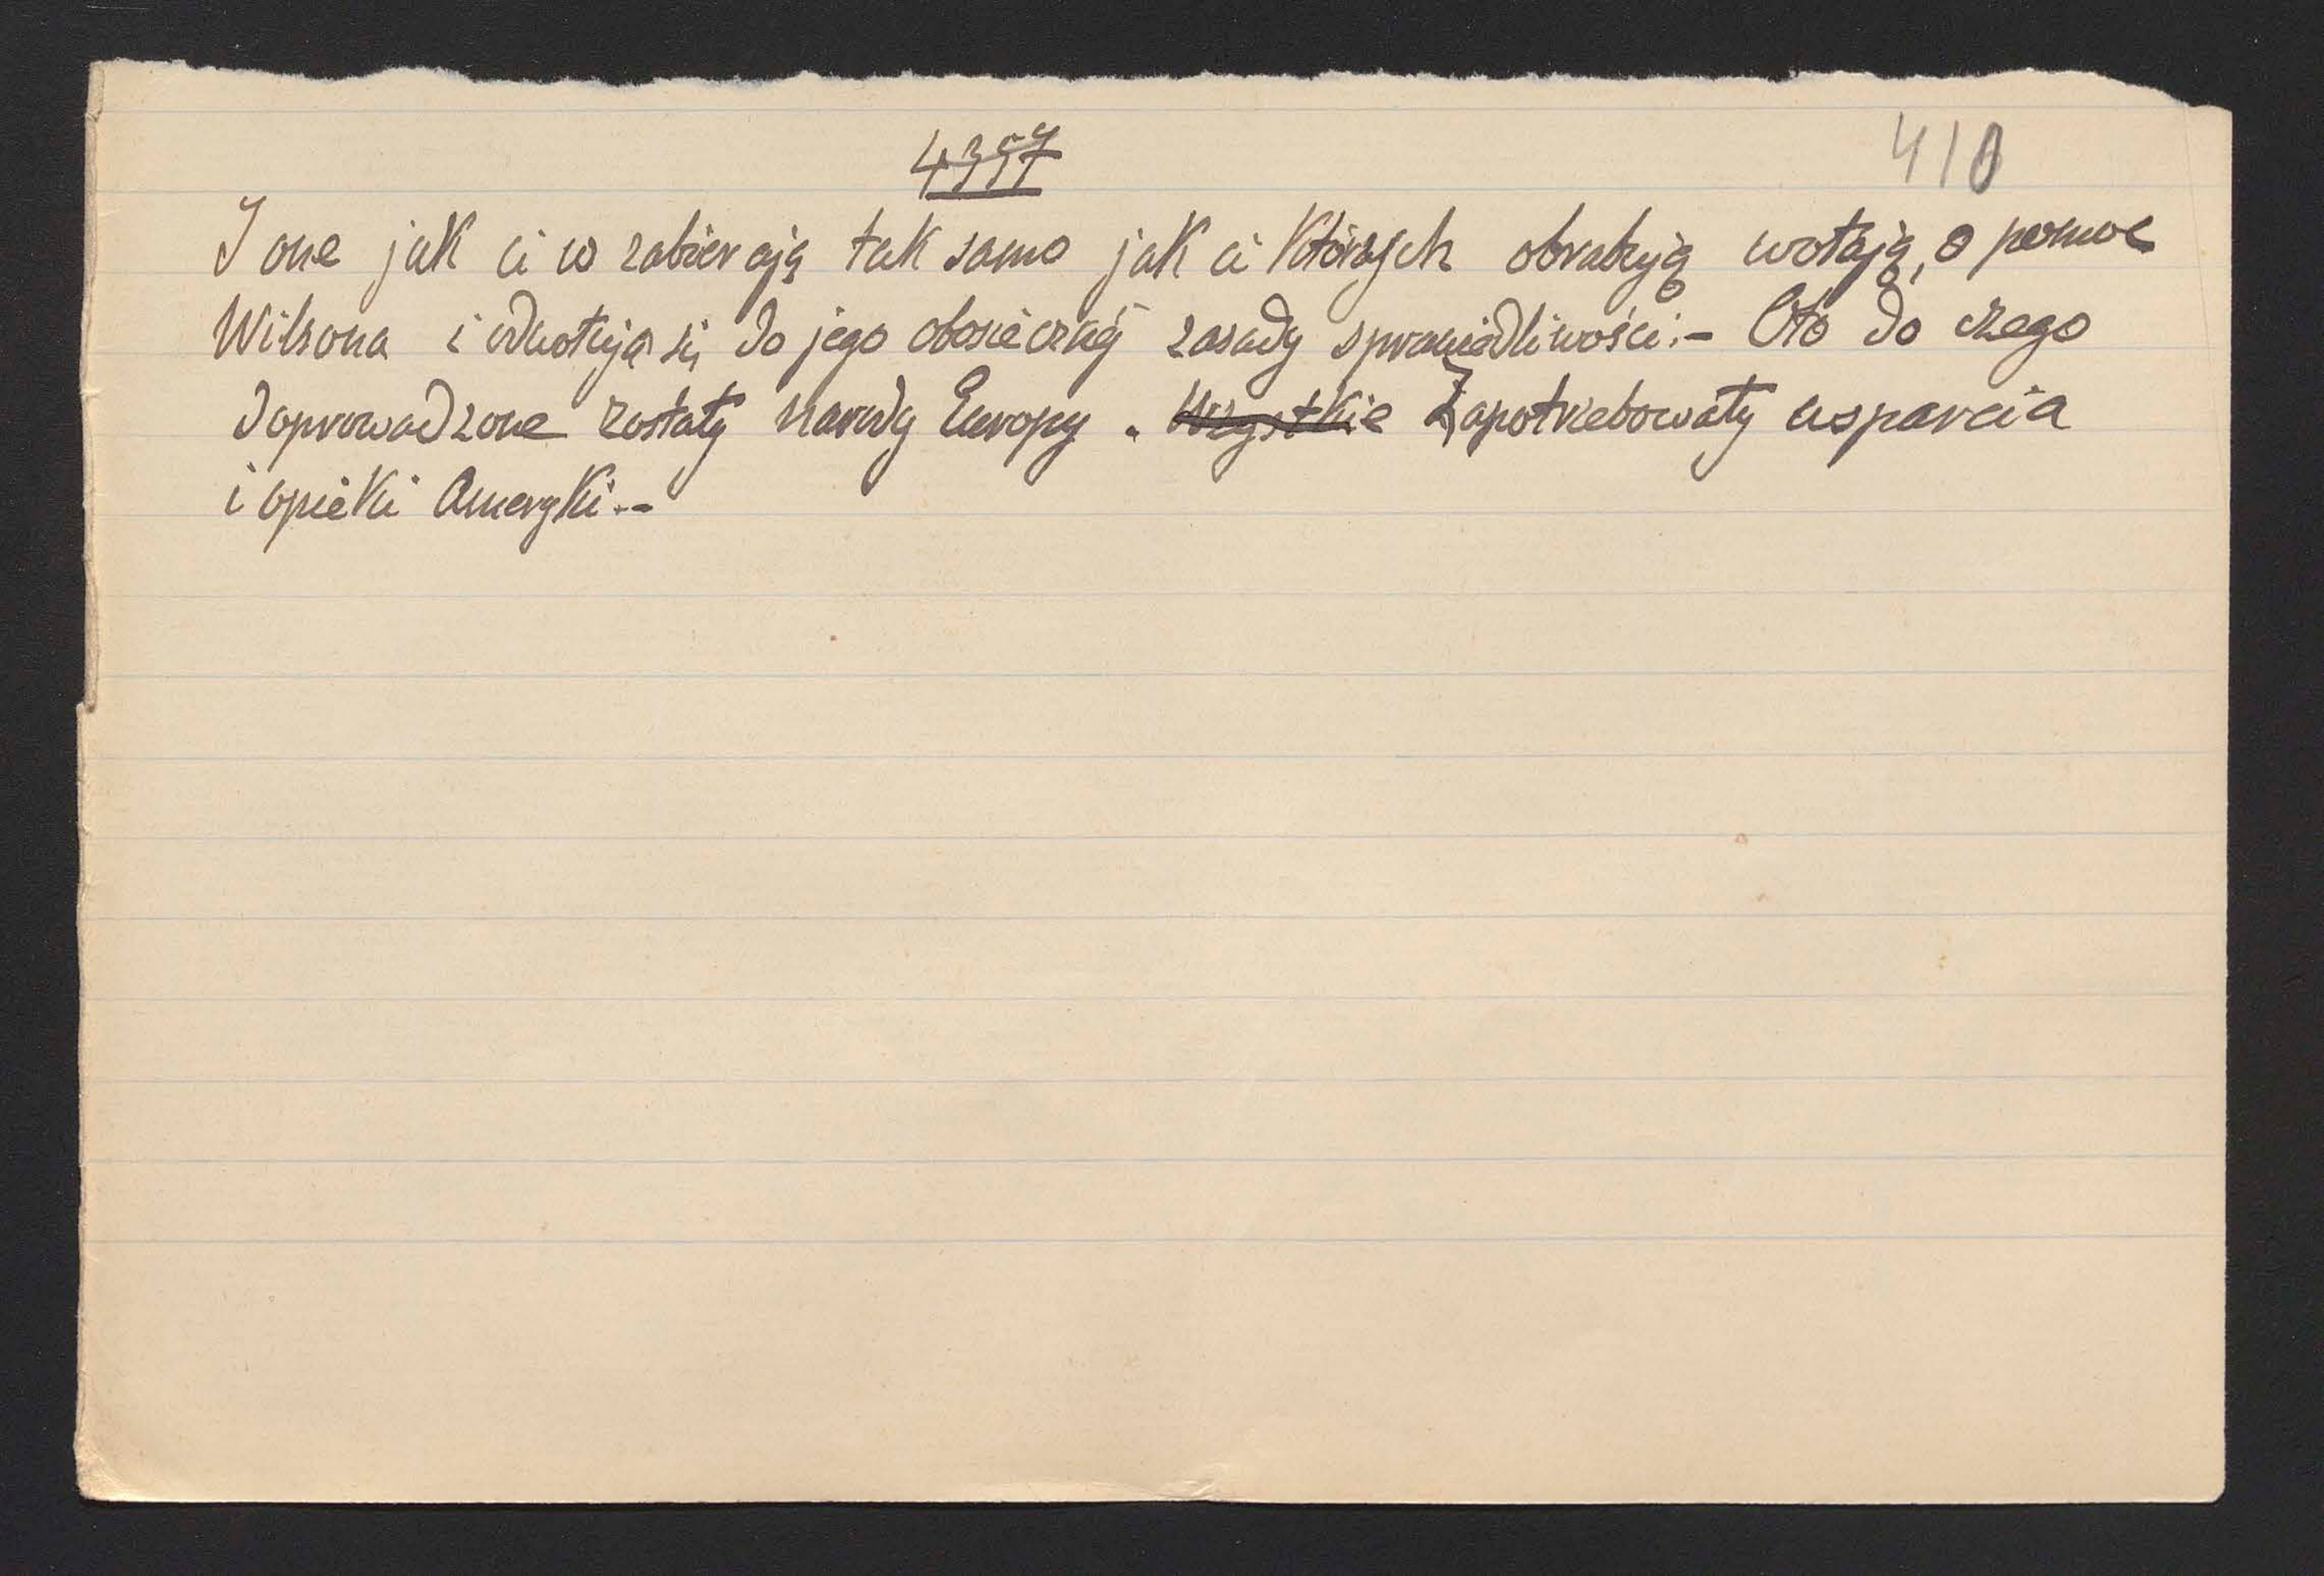 4357
410
I one jak ci co zabierają tak samo jak ci których obrabują wołają, o pomoc
Wilsona i odwołują się do jego obosiecznej zasady sprawiedliwości.- Oto do czego
doprowadzone zostały narody Europy. Wszystkie Zapotrzebowały wsparcia
i opieki Ameryki.-